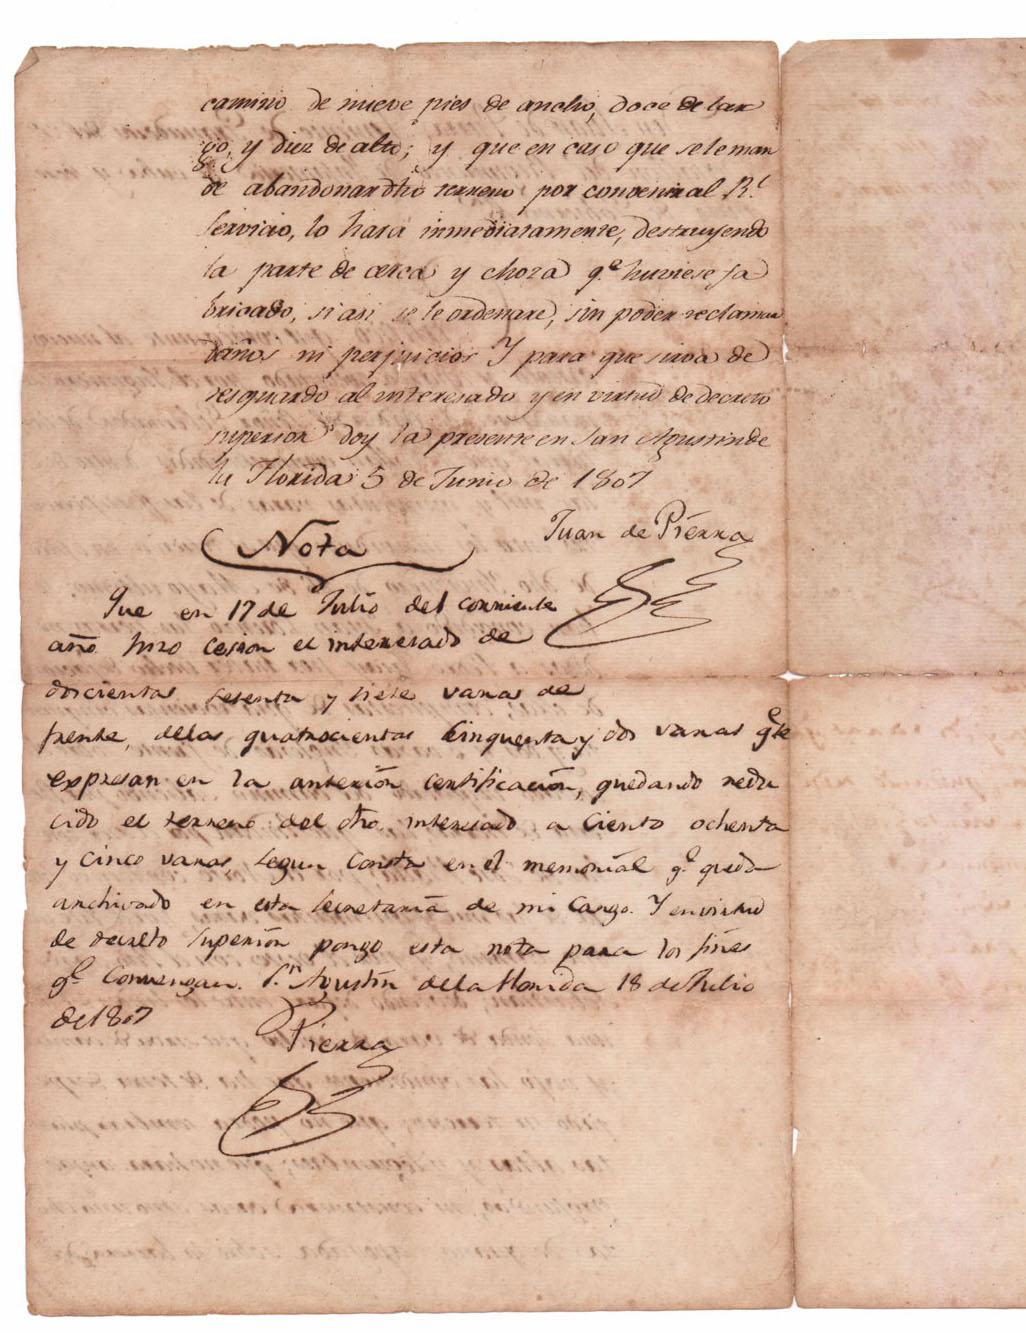 camino de nueve pies de ancho, doce de lar
go, y diez de alto; y que en caso que se le man
de abandonar dho terreno por convenir al Rl
servicio, lo hará inmediatamente, destruyendo
la parte de cerca y choza qe huviese fa
bricado, si asi se le ordenare, sin poder reclamar
daños ni perjuicios Y para que sirva de
resguardo al interesado y en virtud de decreto
superior doy la presente en San Agustin de
la Florida 5 de Junio de 1807
Juan de Pierra
Nota
Que en 17 de Julio del corriente
año hizo cesion el interesado de
doscientas setenta y siete varas de
frente, delas quatrocientas cinquenta y dos varas qe se
expresan en la anterior certificación, quedando redu
cido el terreno del dho interesado a ciento ochenta
y cinco varas segun consta en el memorial qe queda
archivado en esta Secretaria de mi cargo. Y en virtud
de decreto superior pongo esta nota para los fines
qe convengan. Sn Agustin dela Florida 18 de Julio
de 1807
Pierra